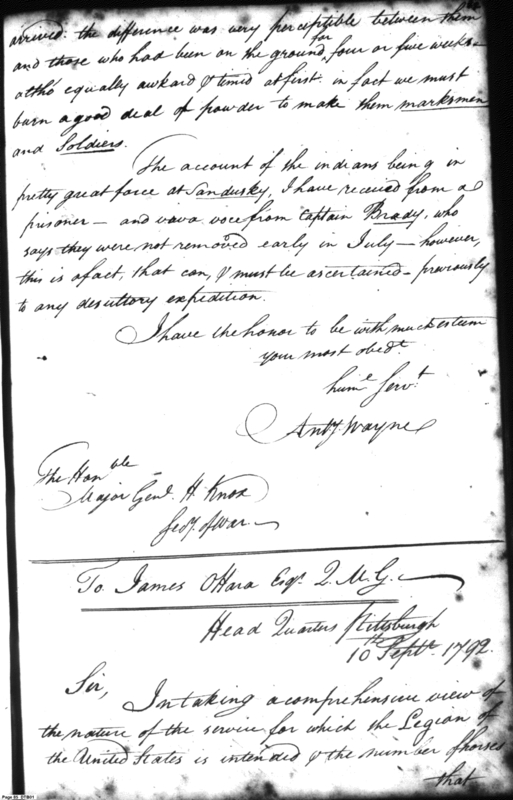 arrived: the difference was very perceptible between them
and those who had been on the ground, for four or five weeks—
altho' equally awkard & timid at first. in fact we must
burn a good deal of powder to make them marksmen
and Soldiers.
The account of the indians being in
pretty great force at Sandusky, I have received from a
prisoner — and vava voce from Captain Brady, who
says they were not removed early in July — however,
this is a fact, that can, & must be ascertained — previously
to any desultory expedition.
I have the honor to be with much esteem
your most obedt
humle Servt
Anty. Wayne
The Honble
Major Genl. H. Knox
Secy. of War.
To James OHara Esqr. Q. M. G.
Head Quarters Pittsburgh
10th Septr. 1792.
Sir,
In taking a comprehensive view of
the nature of the service for which the Legion of
the United States is intended & the number of horses
that